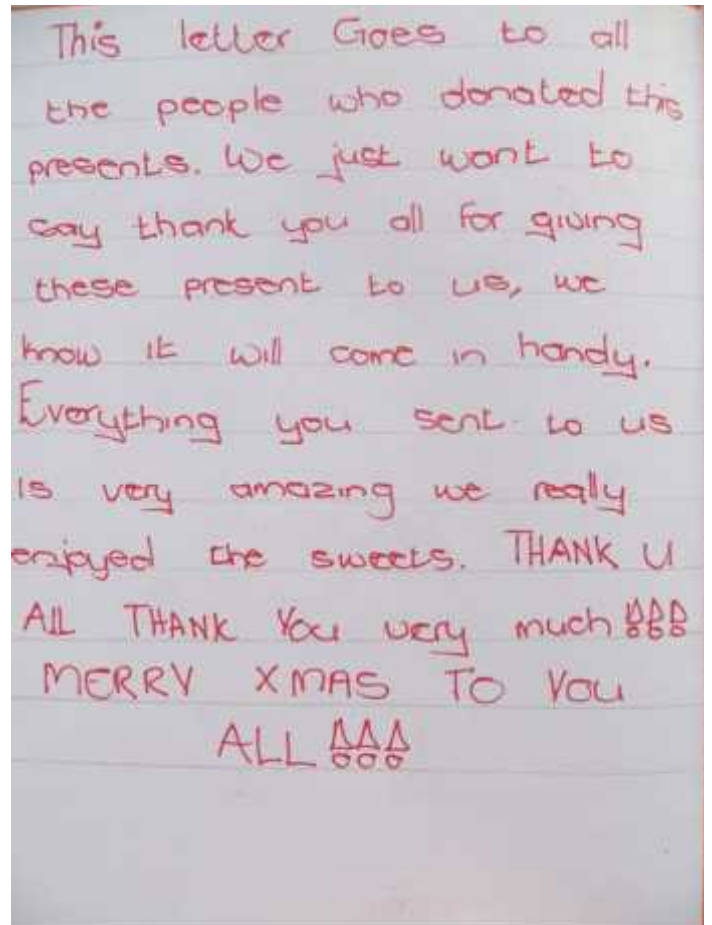 This letter Goes to all
the people who donated this
presents. We just want to
say thank you all for giving
these present to us, we
know it will come in handy.
Everything you sent to us
is very amazing we really
enjoyed the sweets. THANK U
All THANK You very much!!!
MERRY XMAS TO You
ALL!!!